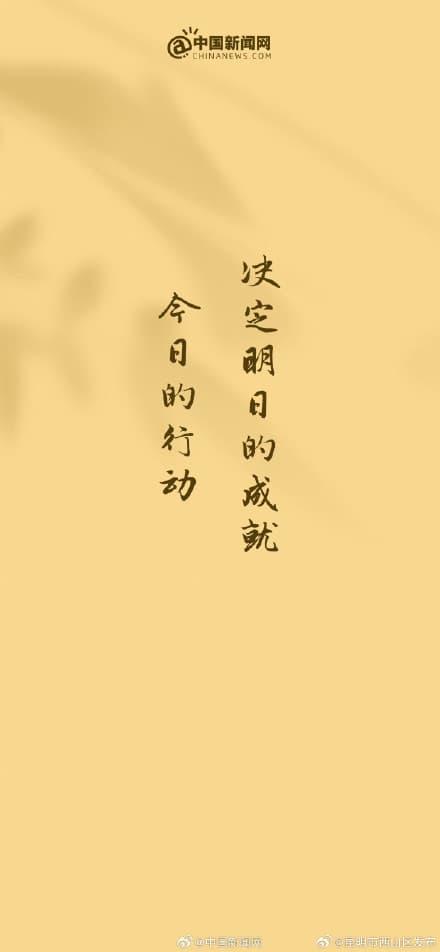 @中国新闻网
CHINANEWS.COM
今日的行动
决定明日的成就
@中国新闻网
@昆明市西山区发布